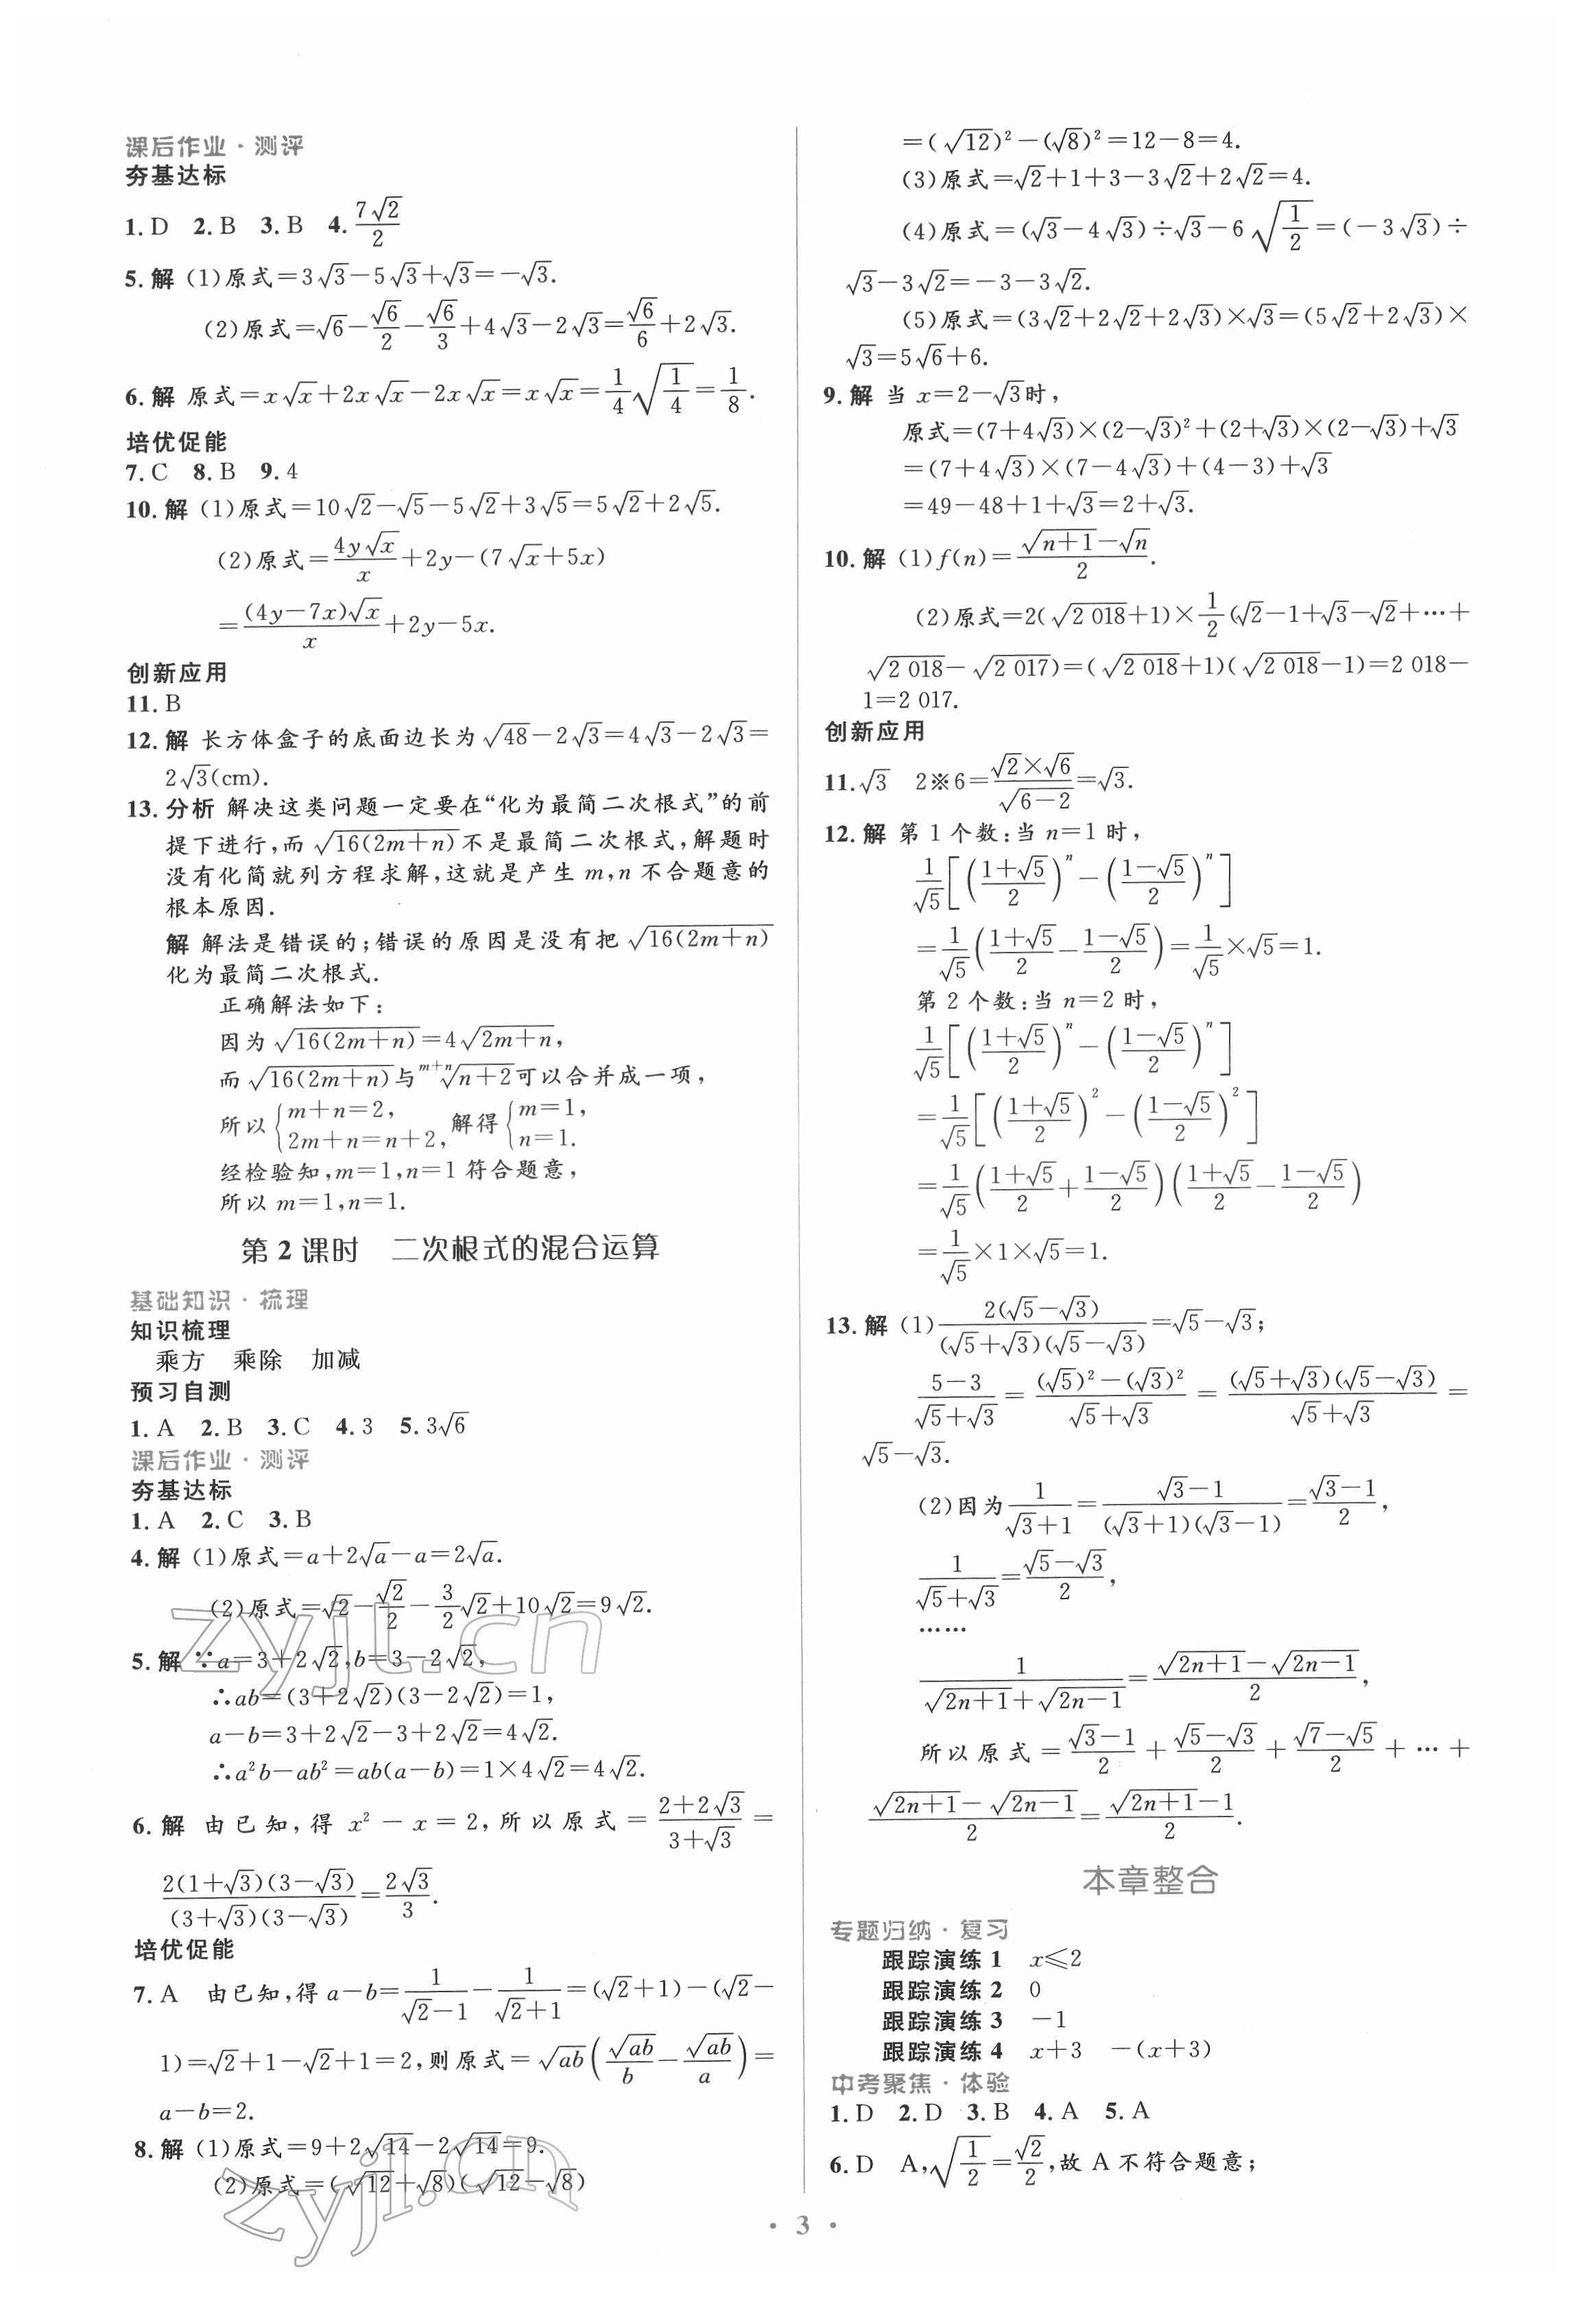 课后作业·测评
夯基达标
1.D  2.B  3.B  4.7√2/2
5.解 (1)原式=3√3-5√3+√3=-√3.
(2)原式=√6-√6/2-√6/3+4√3-2√3=√6/6+2√3.
6.解 原式=x√x+2x√x-2x√x=x√x=1/4√(1/4)=1/8.
培优促能
7.C  8.B  9.4
10.解 (1)原式=10√2-√5-5√2+3√5=5√2+2√5.
(2)原式=4y√x/x+2y-(7√x+5x)
=(4y-7x)√x/x+2y-5x.
创新应用
11.B
12.解 长方体盒子的底面边长为√48-2√3=4√3-2√3=
2√3(cm).
13.分析 解决这类问题一定要在“化为最简二次根式”的前
提下进行,而√(16(2m+n))不是最简二次根式,解题时
没有化简就列方程求解,这就是产生 m,n 不合题意的
根本原因.
解 解法是错误的;错误的原因是没有把√(16(2m+n))
化为最简二次根式.
正确解法如下:
因为√(16(2m+n))=4√(2m+n),
而√(16(2m+n))与 ᵐ⁺ⁿ√(n+2)可以合并成一项,
所以{m+n=2, 2m+n=n+2, 解得{m=1, n=1.
经检验知,m=1,n=1 符合题意,
所以 m=1,n=1.
第 2 课时 二次根式的混合运算
基础知识·梳理
知识梳理
乘方 乘除 加减
预习自测
1.A  2.B  3.C  4.3  5.3√6
课后作业·测评
夯基达标
1.A  2.C  3.B
4.解 (1)原式=a+2√a-a=2√a.
(2)原式=√2-√2/2-3/2√2+10√2=9√2.
5.解 ∵a=3+2√2,b=3-2√2,
∴ab=(3+2√2)(3-2√2)=1,
a-b=3+2√2-3+2√2=4√2.
∴a²b-ab²=ab(a-b)=1×4√2=4√2.
6.解 由已知,得 x²-x=2,所以原式=(2+2√3)/(3+√3)=
2(1+√3)(3-√3)/((3+√3)(3-√3))=2√3/3.
培优促能
7.A 由已知,得 a-b=1/(√2-1)-1/(√2+1)=(√2+1)-(√2-
1)=√2+1-√2+1=2,则原式=√ab(√ab/b-√ab/a)=
a-b=2.
8.解 (1)原式=9+2√14-2√14=9.
(2)原式=(√12+√8)(√12-√8)
=(√12)²-(√8)²=12-8=4.
(3)原式=√2+1+3-3√2+2√2=4.
(4)原式=(√3-4√3)÷√3-6√(1/2)=(-3√3)÷
√3-3√2=-3-3√2.
(5)原式=(3√2+2√2+2√3)×√3=(5√2+2√3)×
√3=5√6+6.
9.解 当 x=2-√3时,
原式=(7+4√3)×(2-√3)²+(2+√3)×(2-√3)+√3
=(7+4√3)×(7-4√3)+(4-3)+√3
=49-48+1+√3=2+√3.
10.解 (1)f(n)=(√(n+1)-√n)/2.
(2)原式=2(√2 018+1)×1/2(√2-1+√3-√2+…+
√2 018-√2 017)=(√2 018+1)(√2 018-1)=2 018-
1=2 017.
创新应用
11.√3  2※6=(√2×√6)/√(6-2)=√3.
12.解 第 1 个数:当 n=1 时,
1/√5[((1+√5)/2)ⁿ-((1-√5)/2)ⁿ]
=1/√5((1+√5)/2-(1-√5)/2)=1/√5×√5=1.
第 2 个数:当 n=2 时,
1/√5[((1+√5)/2)ⁿ-((1-√5)/2)ⁿ]
=1/√5[((1+√5)/2)²-((1-√5)/2)²]
=1/√5((1+√5)/2+(1-√5)/2)((1+√5)/2-(1-√5)/2)
=1/√5×1×√5=1.
13.解 (1)2(√5-√3)/((√5+√3)(√5-√3))=√5-√3;
(5-3)/(√5+√3)=((√5)²-(√3)²)/(√5+√3)=(√5+√3)(√5-√3)/(√5+√3)=
√5-√3.
(2)因为1/(√3+1)=(√3-1)/((√3+1)(√3-1))=(√3-1)/2,
1/(√5+√3)=(√5-√3)/2,
……
1/(√(2n+1)+√(2n-1))=(√(2n+1)-√(2n-1))/2,
所以原式=(√3-1)/2+(√5-√3)/2+(√7-√5)/2+…+
(√(2n+1)-√(2n-1))/2=(√(2n+1)-1)/2.
本章整合
专题归纳·复习
跟踪演练 1 x≤2
跟踪演练 2 0
跟踪演练 3 -1
跟踪演练 4 x+3 -(x+3)
中考聚焦·体验
1.D  2.D  3.B  4.A  5.A
6.D A,√(1/2)=√2/2,故 A 不符合题意;
· 3 ·
zyjl.cn
zyjl.cn